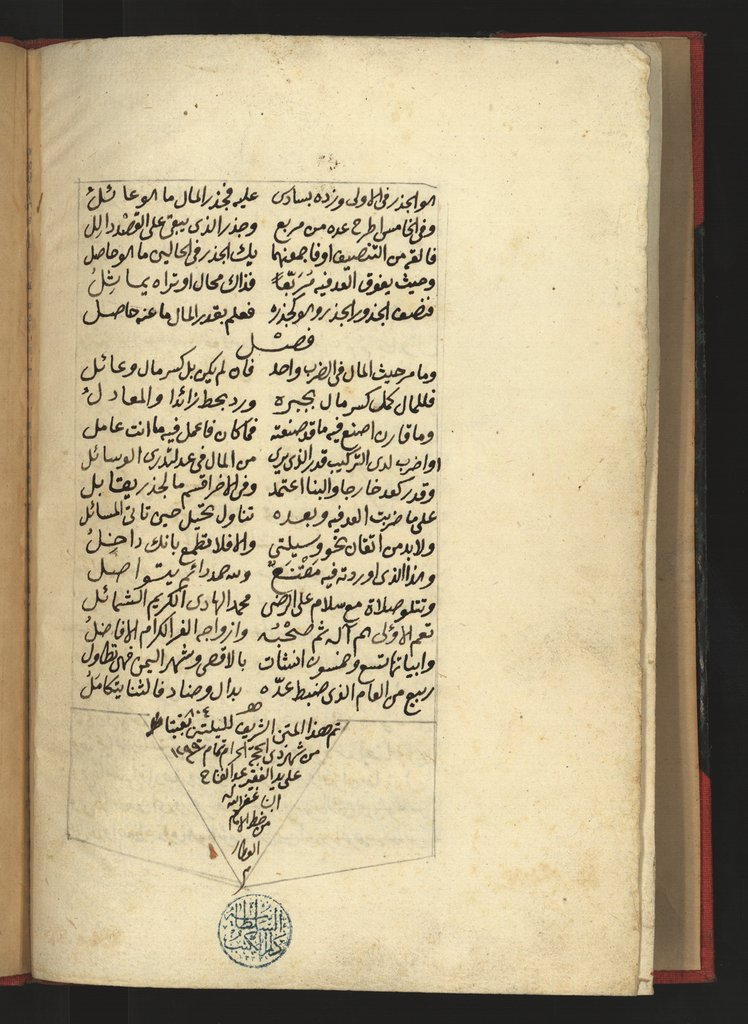 هو الجذر فى الاولى وزده بسادس عليه فجذر المال ما هو عائل
وفى الخامس اطرح عده من مربع وجذر الذى يبقى على القصد دالل
فالقه من التنصيف او فاجمعنهما يك الجذر فى الحالين ما هو حاصل
وحيث يفوق العد فيه مربعا فذاك محال او تراه يماثل
فنصف الجذور الجذر وهو كجذره فعلم بقدر المال ما عنه حاصل
فصل
وما مر حيث المال فى الضرب واحد فان لم يكن بل كسر مال وعائل
فللمال كمل كسر مال بجبره ورد بحط زائدا والمعادل
وما قارن اصنع فيه ما قد صنعته فما كان فاعمل فيه ما انت عامل
او اضرب لدى التركيب قدر الذى يرى من المال فى عد لذى الوسائل
وقدر كعد خارجا والبنا اعتمد وفى الاخر اقسم ما لجذر يقابل
على ما ضربت العد فيه وبعده تناول بحيل حين تاتى المسائل
ولا بد من اتقان نحو وسيلتى والا فلا تطمع بانك داخل
وهذا الذى اوردته فيه مقنع ولله حمد دائم يتواصل
وتتلو صلاة مع سلام على الرضى محمد الهادى الكريم الشمائل
تعم الاولى هم آله ثم صحبه وازواجه الغر الكرام الافاضل
وابياتها تسع وخمسون انشئت بالاقصى وشهر اليمن فهى تطاول
ربيع من العام الذى ضبط عده بدال وضاد فالثنا يتكامل
٨٠٤
تم هذا المتن الشريف لليلتين بقيتا
من شهر ذى الحجة الحرام تمام
على يد الفقير عبد الفتاح
غفر الله له
من خط الامام
العطار
م